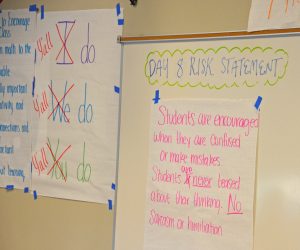 to Encourage
class
math to the
important
activity, and
connections and
important
learning.
Y'all I do
Y'all We do
Y'all You do
DAY 8 RISK STATEMENT
Students are encouraged
when they are confused
or make mistakes.
Students are never teased
about their thinking. No
sarcasm or humiliation